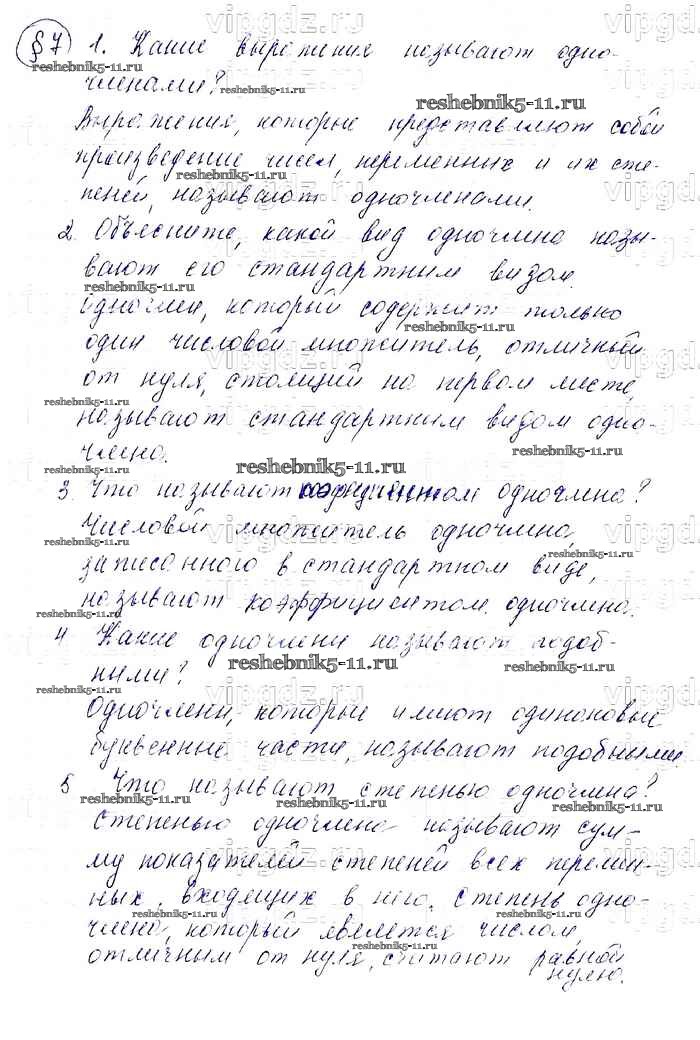 §7 1. Какие выражения называют одно-
членами?
Выражения, которые представляют собой
произведение чисел, переменных и их сте-
пеней, называют одночленами.
2. Объясните, какой вид одночлена назы-
вают его стандартным видом.
Одночлен, который содержит только
один числовой множитель, отличный
от нуля, стоящий на первом месте,
называют стандартным видом одно-
члена.
3. Что называют коэффициентом одночлена?
Числовой множитель одночлена,
записанного в стандартном виде,
называют коэффициентом одночлена.
4 Какие одночлены называют подоб-
ными?
Одночлены, которые имеют одинаковые
буквенные части, называют подобными.
5 Что называют степенью одночлена?
Степенью одночлена называют сум-
му показателей степеней всех перемен-
ных, входящих в него. Степень одно-
члена, который является числом,
отличным от нуля, считают равной
нулю.
vipgdz.ru
reshebnik5-11.ru